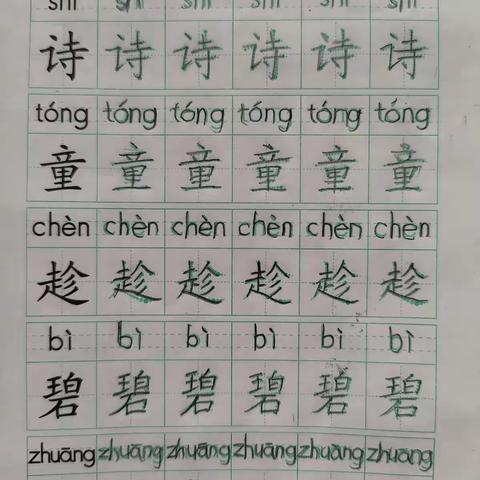 shī shī shī shī shī shī
诗 诗 诗 诗 诗 诗
tóng tóng tóng tóng tóng tóng
童 童 童 童 童 童
chèn chèn chèn chèn chèn chèn
趁 趁 趁 趁 趁 趁
bì bì bì bì bì bì
碧 碧 碧 碧 碧 碧
zhuāng zhuāng zhuāng zhuāng zhuāng zhuāng